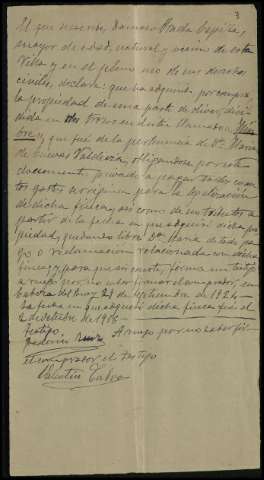 3
El que suscribe, Damaso Prada Espiña,
mayor de edad, natural y vecino de esta
Villa y en el pleno uso de sus derechos
civiles, declara: que ha adquirido por compra
la propiedad de una parte de olivar, divi-
dida en dos trozos en
y que fué de la pertenencia de Dª. María
de Cuevas Valdivia, obligandose por este
documento privado a pagar todos cuan-
tos gastos se originen para la legalización
de dicha finca, así como de sus tributos a
partir de la fecha en que adquirió dicha pro-
piedad, quedando libre Dª. María de todo pa-
go o reclamación relacionada con dicha
finca; y para que así conste, firma un testigo
a ruego por no saber firmar el comprador, en
del Rey 29 de Septiembre de 1924.-
La fecha en que adquirió dicha finca fué el
2 de Octubre de 19
Testigo, A ruego por no saber fir-
Federico
el comprador el testigo
Valentin